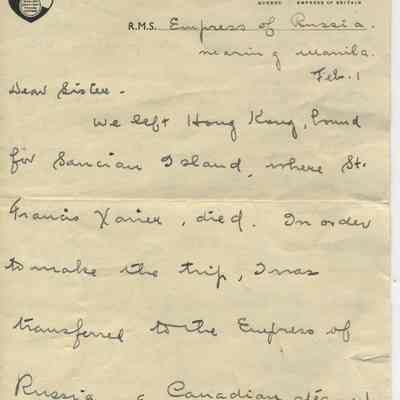 QUEBEC EMPRESS OF BRITAIN
R.M.S. Empress of Russia.
nearing Manila.
Feb. 1
Dear Sister -
We left Hong Kong, bound
for Sancian Island, where St.
Francis Xavier, died. In order
to make the trip, I was
transferred to the Empress of
Russia a Canadian